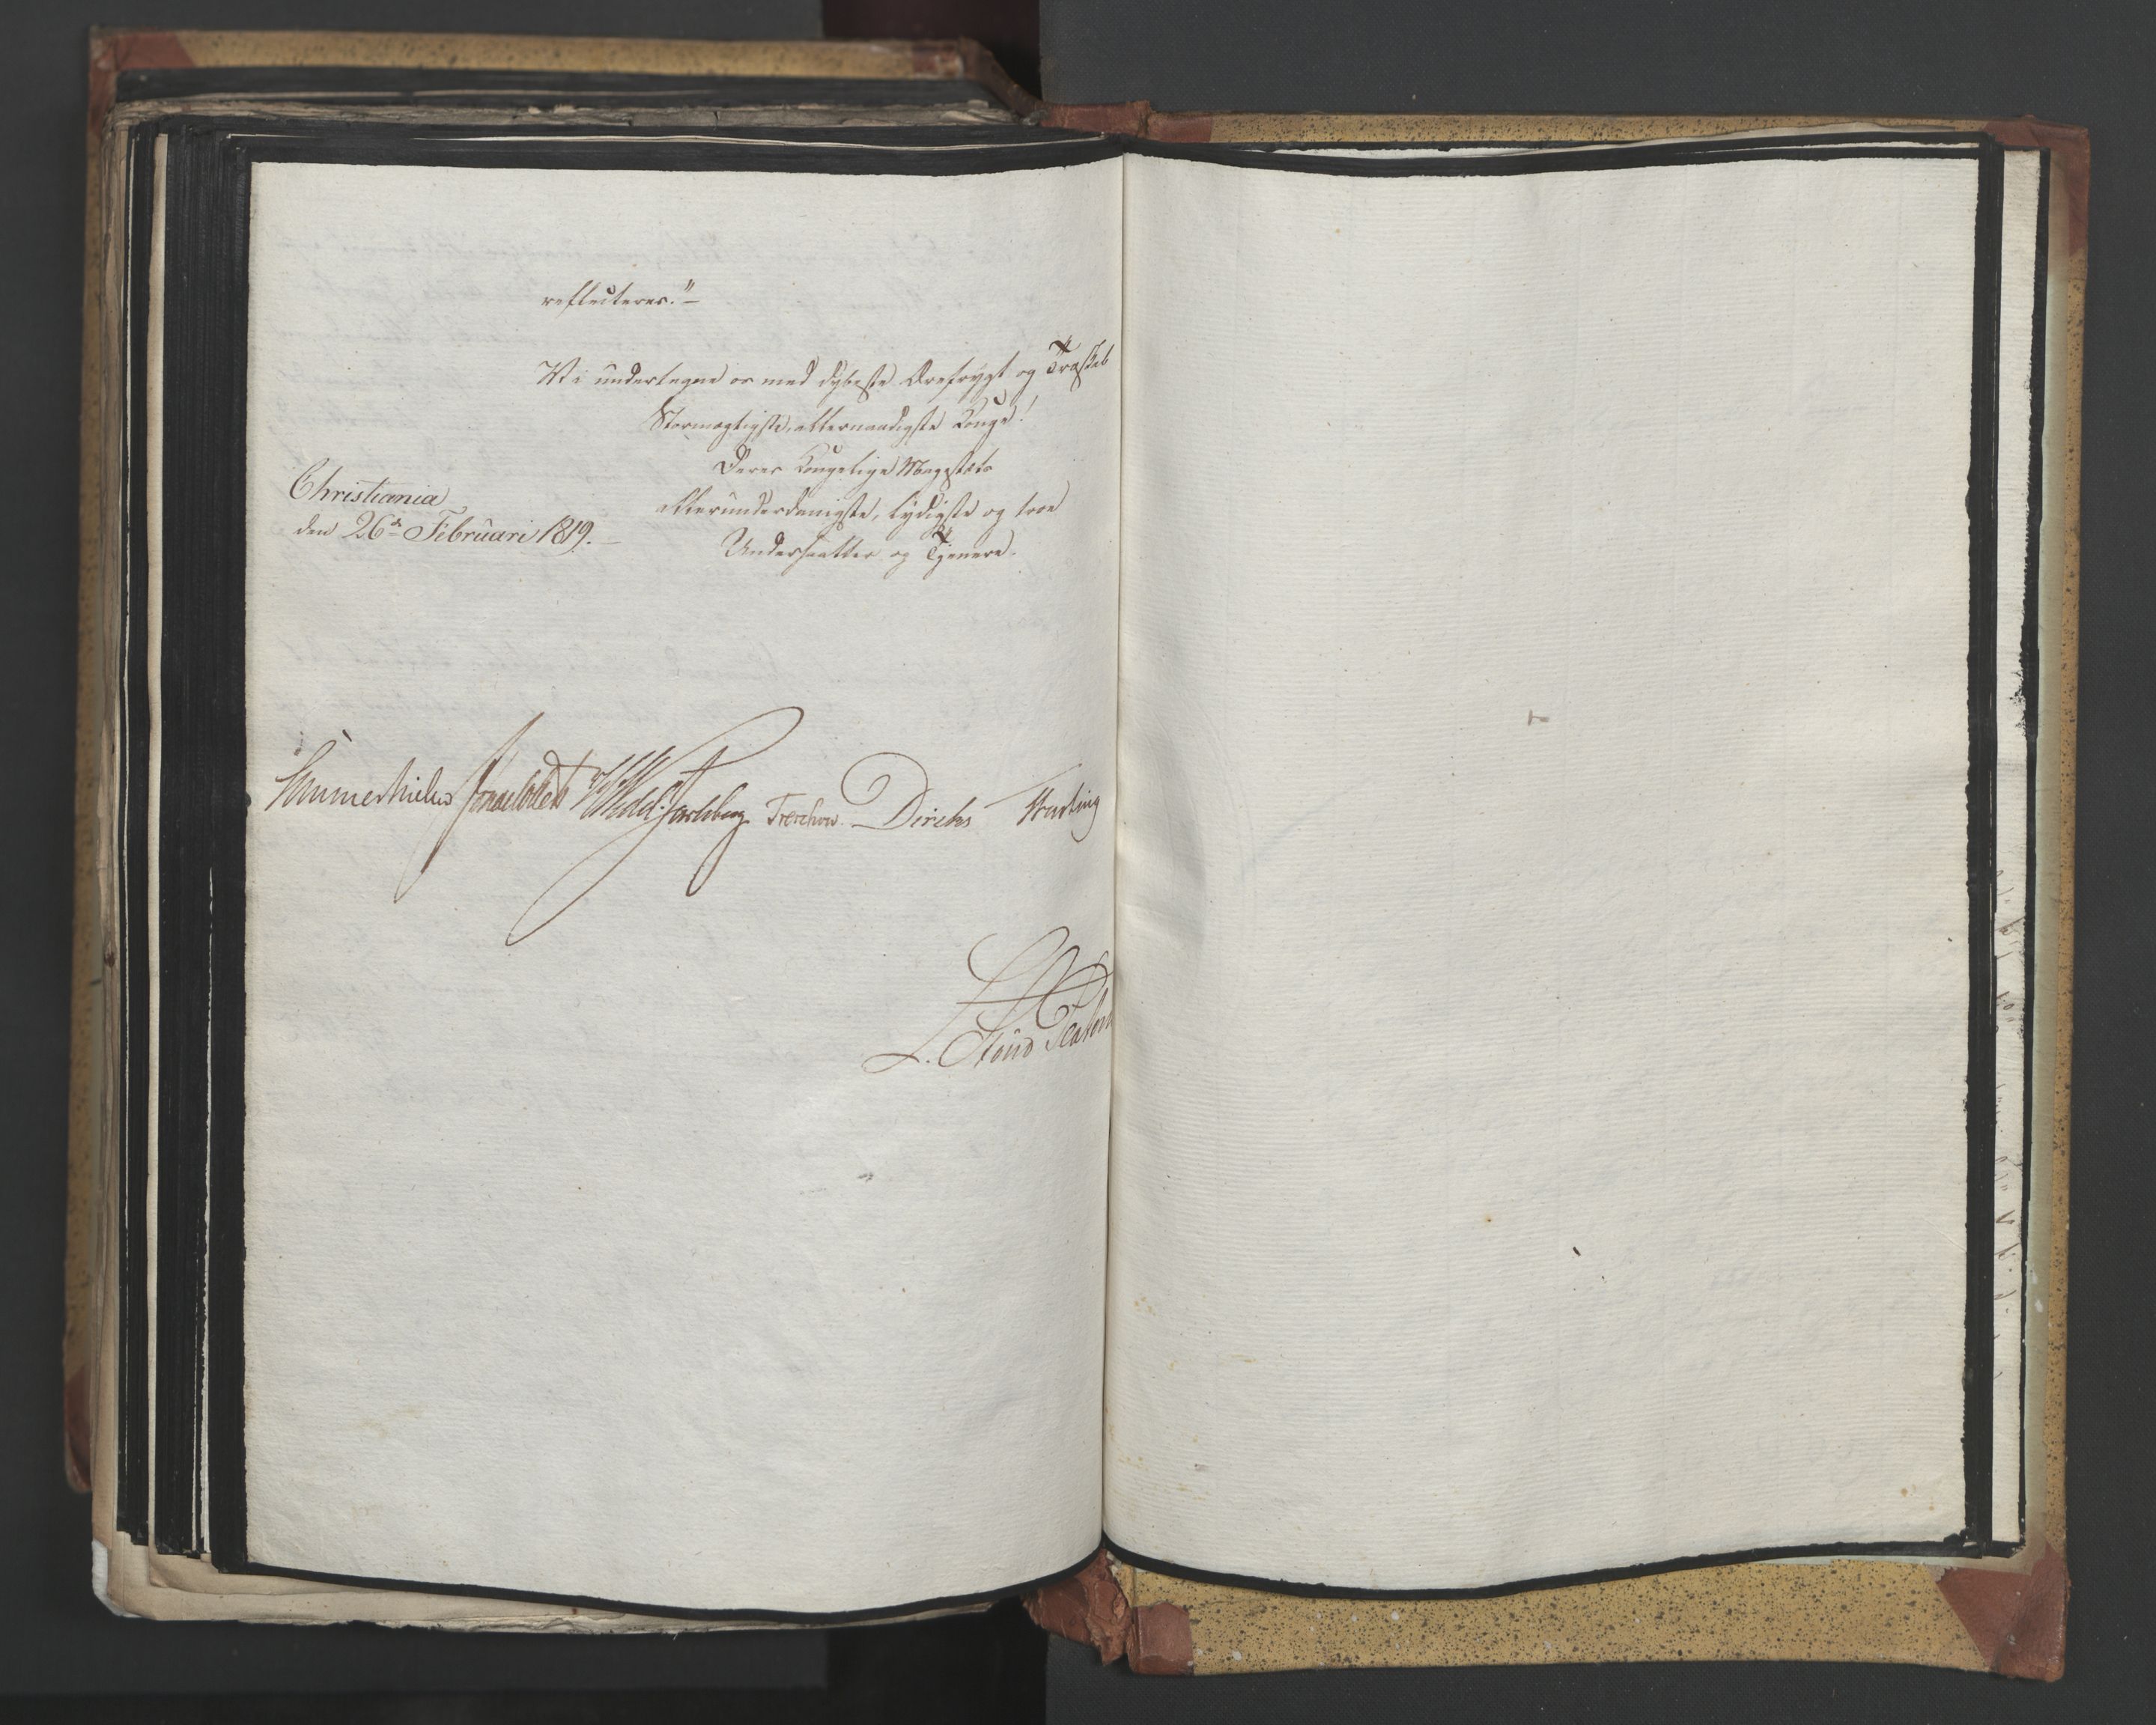 reflecteres."–
Vi undertegne os med dybeste Ærefrygt og Troskab
Stormægtigste, allernaadigste Konge!
Deres Kongelige Majestæts
allerunderdanigste, lydigste og troe
Undersaatter og Tjenere.
Christiania
den 26de Februari 1819. –
Sommerhielm Jonas Collett Wedel-Jarlsberg Treschow Diriks Hersleb
L. Stoud Platou